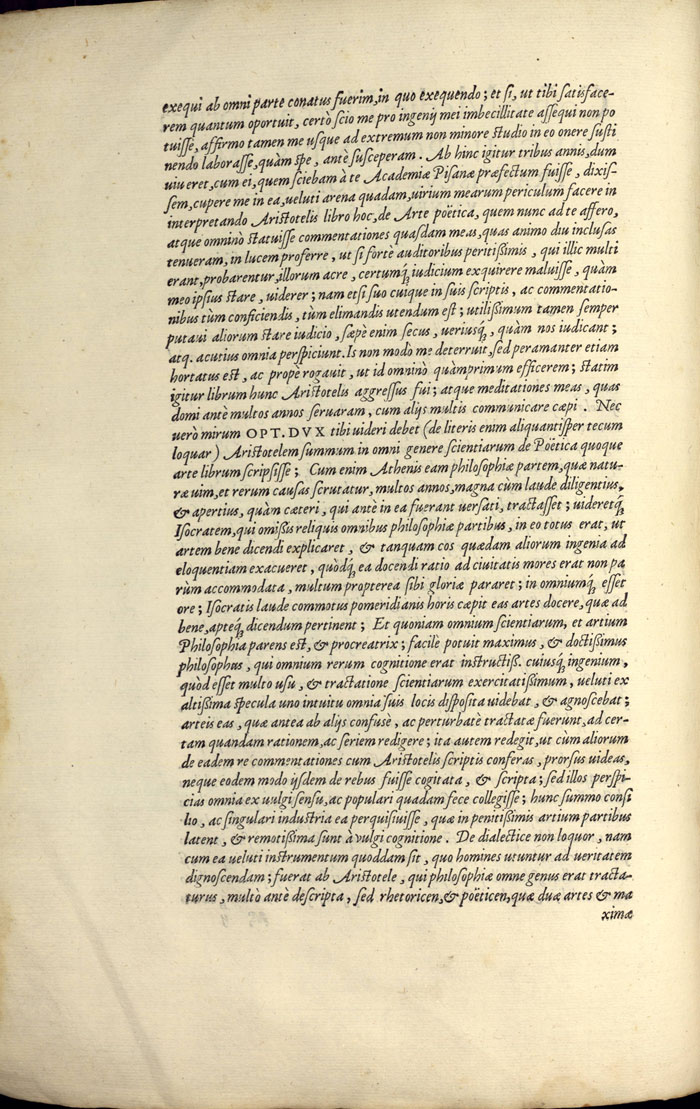 exequi ab omni parte conatus fuerim, in quo exequendo; et si, ut tibi satisface-
rem quantum oportuit, certò scio me pro ingenij mei imbecillitate assequi non po
tuisse, affirmo tamen me usque ad extremum non minore studio in eo onere susti
nendo laborasse, quàm spe, antè susceperam. Ab hinc igitur tribus annis, dum
viveret, cum ei, quem sciebam à te Academiæ Pisanæ præfectum fuisse, dixis-
sem, cupere me in ea, veluti arena quadam, virium mearum periculum facere in
interpretando Aristotelis libro hoc, de Arte poëtica, quem nunc ad te affero,
atque omninò statuisse commentationes quasdam meas, quas animo diu inclusas
tenueram, in lucem proferre, ut si forte auditoribus peritißimis, qui illic multi
erant, probarentur, illorum acre, certumq́; iudicium exquirere maluisse, quàm
meo ipsius stare, viderer; nam etsi suo cuique in suis scriptis, ac commentatio-
nibus tùm conficiendis, tùm elimandis utendum est; utilißimum tamen semper
putavi aliorum stare iudicio, sæpè enim secus, veriusq́;, quàm nos iudicant;
atq. acutius omnia perspiciunt. Is non modò me deterruit, sed peramanter etiam
hortatus est, ac propè rogavit, ut id omninò quàmprimum efficerem; statim
igitur librum hunc Aristotelis aggressus fui; atque meditationes meas, quas
domi antè multos annos servaram, cum alijs multis communicare cæpi. Nec
verò mirum OPT. DVX tibi videri debet (de literis enim aliquantisper tecum
loquar) Aristotelem summum in omni genere scientiarum de Poëtica quoque
arte librum scripsisse; Cum enim Athenis eam philosophiæ partem, quæ natu-
ræ vim, et rerum causas scrutatur, multos annos, magna cùm laude diligentius,
& apertius, quàm cæteri, qui antè in ea fuerant versati, tractasset; videretq́;
Isocratem, qui omißis reliquis omnibus philosophiæ partibus, in eo totus erat, ut
artem bene dicendi explicaret, & tanquam cos quædam aliorum ingenia ad
eloquentiam exacueret, quòdq́; ea docendi ratio ad civitatis mores erat non pa
rùm accommodata, multum propterea sibi gloriæ pararet; in omniumq́; esset
ore; Isocratis laude commotus pomeridianis horis cæpit eas artes docere, quæ ad
bene, apteq́; dicendum pertinent; Et quoniam omnium scientiarum, et artium
Philosophia parens est, & procreatrix; facilè potuit maximus, & doctißimus
philosophus, qui omnium rerum cognitione erat instructiß. cuiusq́; ingenium,
quòd esset multo usu, & tractatione scientiarum exercitatißimum, veluti ex
altißima specula uno intuitu omnia suis locis disposita videbat, & agnoscebat;
arteis eas, quæ antea ab alijs confuse, ac perturbatè tractatæ fuerunt, ad cer-
tam quandam rationem, ac seriem redigere; ita autem redegit, ut cùm aliorum
de eadem re commentationes cum Aristotelis scriptis conferas, prorsus videas,
neque eodem modo ijsdem de rebus fuisse cogitata, & scripta; sed illos perspi-
cias omnia ex vulgi sensu, ac populari quadam fece collegisse; hunc summo consi
lio, ac singulari industria ea perquisivisse, quæ in penitißimis artium partibus
latent, & remotißima sunt à vulgi cognitione. De dialectice non loquor, nam
cum ea veluti instrumentum quoddam sit, quo homines utuntur ad veritatem
dignoscendam; fuerat ab Aristotele, qui philosophiæ omne genus erat tracta-
turus, multò antè descripta, sed rhetoricen, & poëticen, quæ duæ artes & ma
ximæ